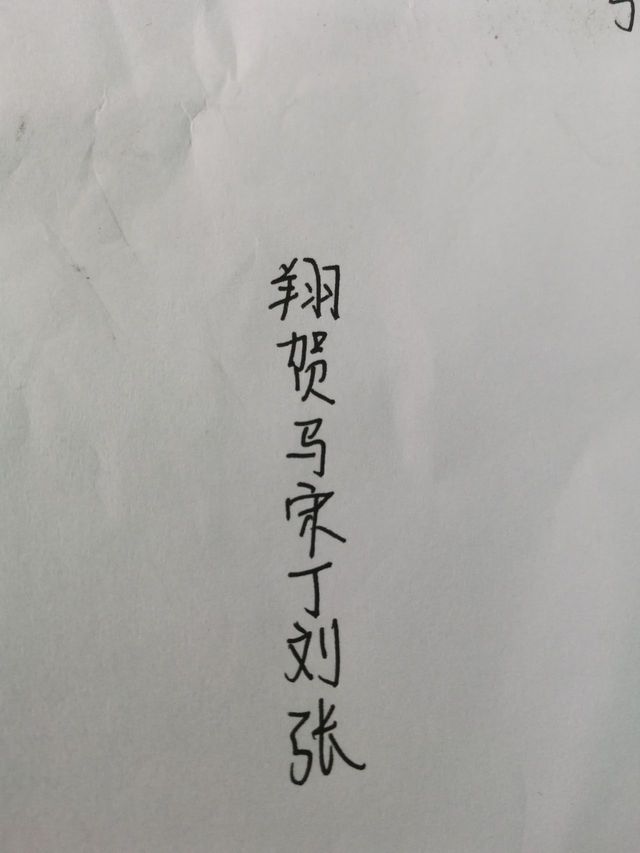 翔贺马宋丁刘张